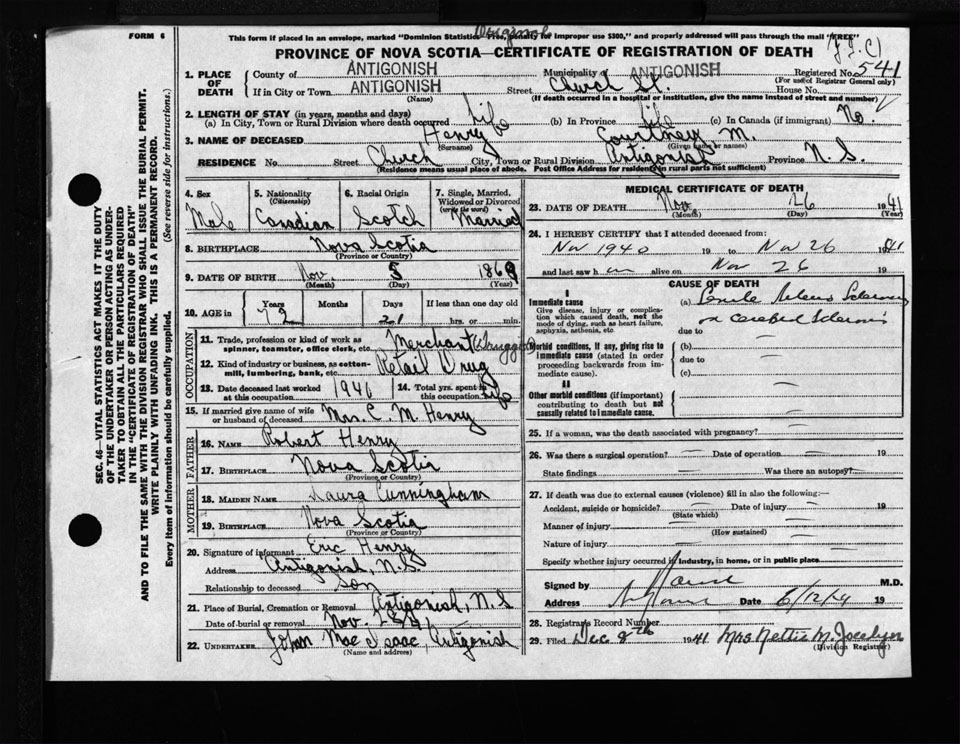 Original
This form if placed in an envelope, marked "Dominion Statistics—Free, penalty for improper use $300," and properly addressed will pass through the mail "FREE"
FORM 6
PROVINCE OF NOVA SCOTIA—CERTIFICATE OF REGISTRATION OF DEATH
1. PLACE OF DEATH County of ANTIGONISH Municipality of ANTIGONISH Registered No. 541
(For use of Registrar General only)
If in City or Town ANTIGONISH Street Church St. House No.
(Name) (If death occurred in a hospital or institution, give the name instead of street and number)
2. LENGTH OF STAY (in years, months and days)
(a) In City, Town or Rural Division where death occurred Life (b) In Province Life (c) In Canada (if immigrant) No.
3. NAME OF DECEASED Henry Courtney M.
(Surname) (Given name or names)
RESIDENCE No. Street Church City, Town or Rural Division Antigonish Province N. S.
(Residence means usual place of abode. Post Office Address for residence in rural parts not sufficient)
SEC. 46—VITAL STATISTICS ACT MAKES IT THE DUTY
OF THE UNDERTAKER OR PERSON ACTING AS UNDER-
TAKER TO OBTAIN ALL THE PARTICULARS REQUIRED
IN THE "CERTIFICATE OF REGISTRATION OF DEATH"
AND TO FILE THE SAME WITH THE DIVISION REGISTRAR WHO SHALL ISSUE THE BURIAL PERMIT.
WRITE PLAINLY WITH UNFADING INK. THIS IS A PERMANENT RECORD.
Every item of Information should be carefully supplied. (See reverse side for instructions.)
4. Sex 5. Nationality 6. Racial Origin 7. Single, Married,
(Citizenship) Widowed or Divorced
(write the word)
Male Canadian Scotch Married
8. BIRTHPLACE Nova Scotia
(Province or Country)
9. DATE OF BIRTH Nov 5 1869
(Month) (Day) (Year)
10. AGE in Years Months Days If less than one day old
72 21 hrs. or min.
OCCUPATION
11. Trade, profession or kind of work as Merchant (Druggist)
spinner, teamster, office clerk, etc.
12. Kind of industry or business, as cotton- Retail Drug
mill, lumbering, bank, etc.
13. Date deceased last worked 14. Total yrs. spent in
at this occupation 1940 this occupation Life
15. If married give name of wife
or husband of deceased Mrs. C. M. Henry
FATHER
16. NAME Robert Henry
17. BIRTHPLACE Nova Scotia
(Province or Country)
MOTHER
18. MAIDEN NAME Laura Cunningham
19. BIRTHPLACE Nova Scotia
(Province or Country)
20. Signature of informant Eric Henry
Address Antigonish, N.S.
Relationship to deceased Son
21. Place of Burial, Cremation or Removal Antigonish, N.S
Date of burial or removal Nov.
22. UNDERTAKER John Mac Isaac, Antigonish
(Name and address)
MEDICAL CERTIFICATE OF DEATH
23. DATE OF DEATH Nov 26 1941
(Month) (Day) (Year)
24. I HEREBY CERTIFY that I attended deceased from:
Nov 1940 19 to Nov 26 1941
and last saw him alive on Nov 26 19
CAUSE OF DEATH
I
Immediate cause
Give disease, injury or complication which caused death, not the mode of dying, such as heart failure, asphyxia, asthenia, etc.
(a) Senile Sclerosis
or Cerebral Sclerosis
due to
Morbid conditions, if any, giving rise to immediate cause (stated in order proceeding backwards from immediate cause).
(b)
due to
(c)
II
Other morbid conditions (if important) contributing to death but not causally related to immediate cause.
25. If a woman, was the death associated with pregnancy?
26. Was there a surgical operation? Date of operation 19
State findings Was there an autopsy?
27. If death was due to external causes (violence) fill in also the following:—
Accident, suicide or homicide? Date of injury 19
(State which)
Manner of injury
(How sustained)
Nature of injury
Specify whether injury occurred in industry, in home, or in public place
Signed by M.D.
Address Date 6/12/ 19
28. Registrar's Record Number
29. Filed Dec 8th 1941 Mrs Nettie M. Jocelyn
(Division Registrar)